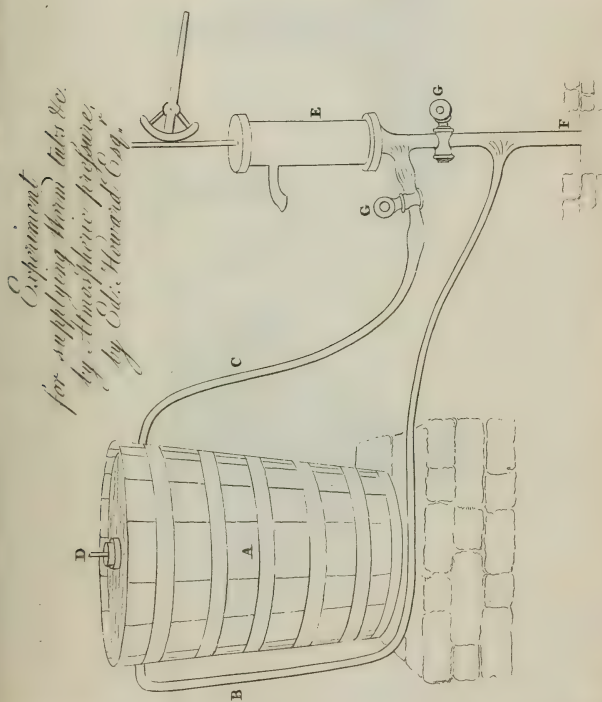 Experiment
for supplying Worm tubs &c.
by Atmospheric pressure,
by Edw. Howard Esq.
D
A
B
C
E
G
G
F